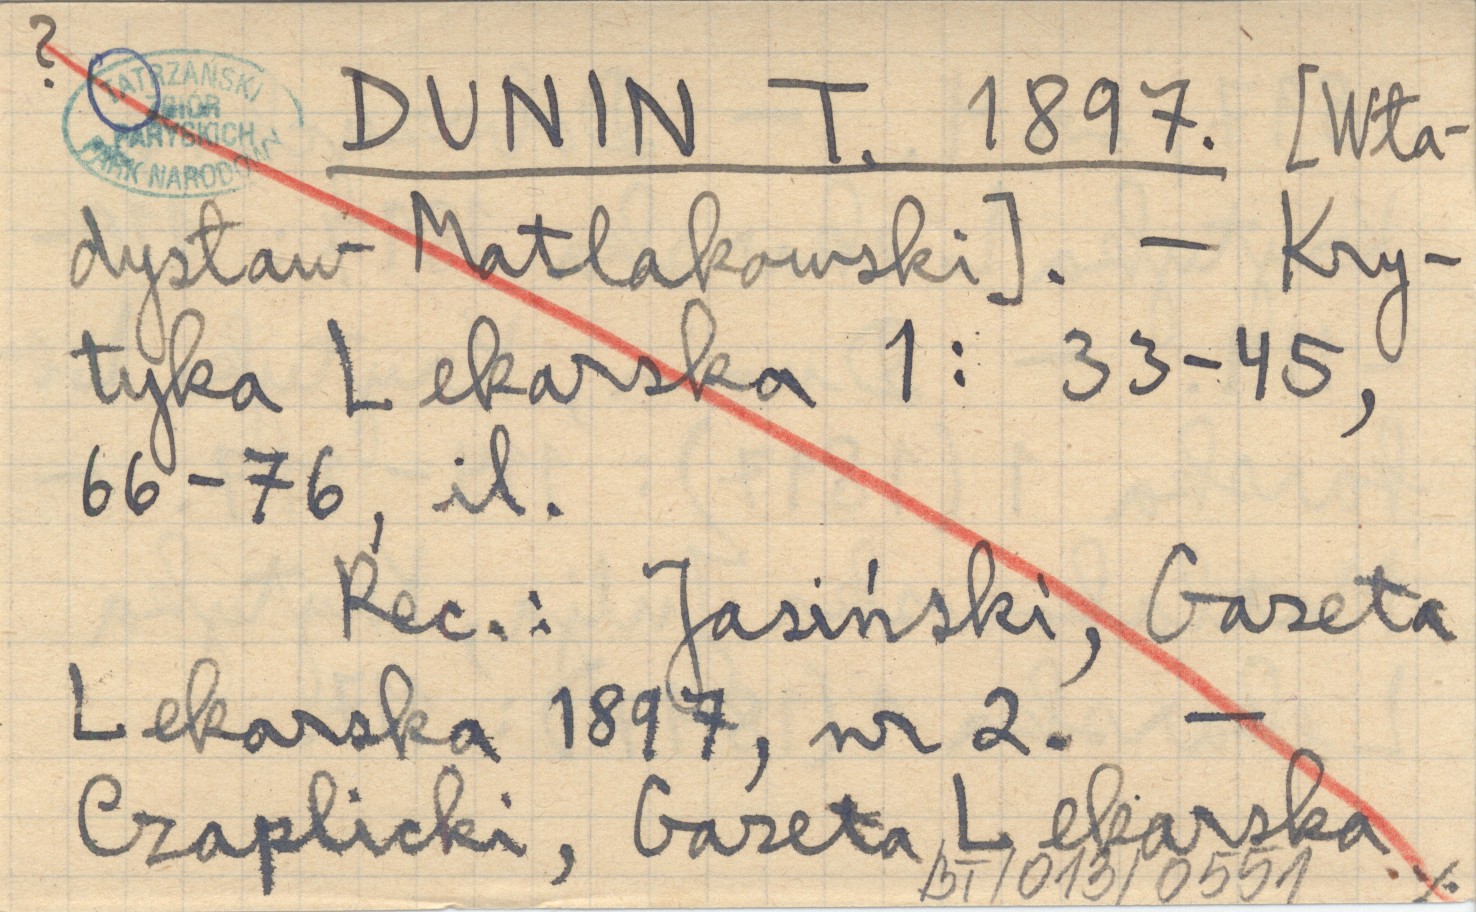 ?
TATRZAŃSKI
ZBIÓR
PARYSKICH
PARK NARODOWY
DUNIN T. 1897. [Wła-
dysław Matlakowski]. – Kry-
tyka Lekarska 1: 33-45,
66-76, il.
Rec.: Jasiński, Gazeta
Lekarska 1897, nr 2. –
Czaplicki, Gazeta Lekarska
BT/013/0551